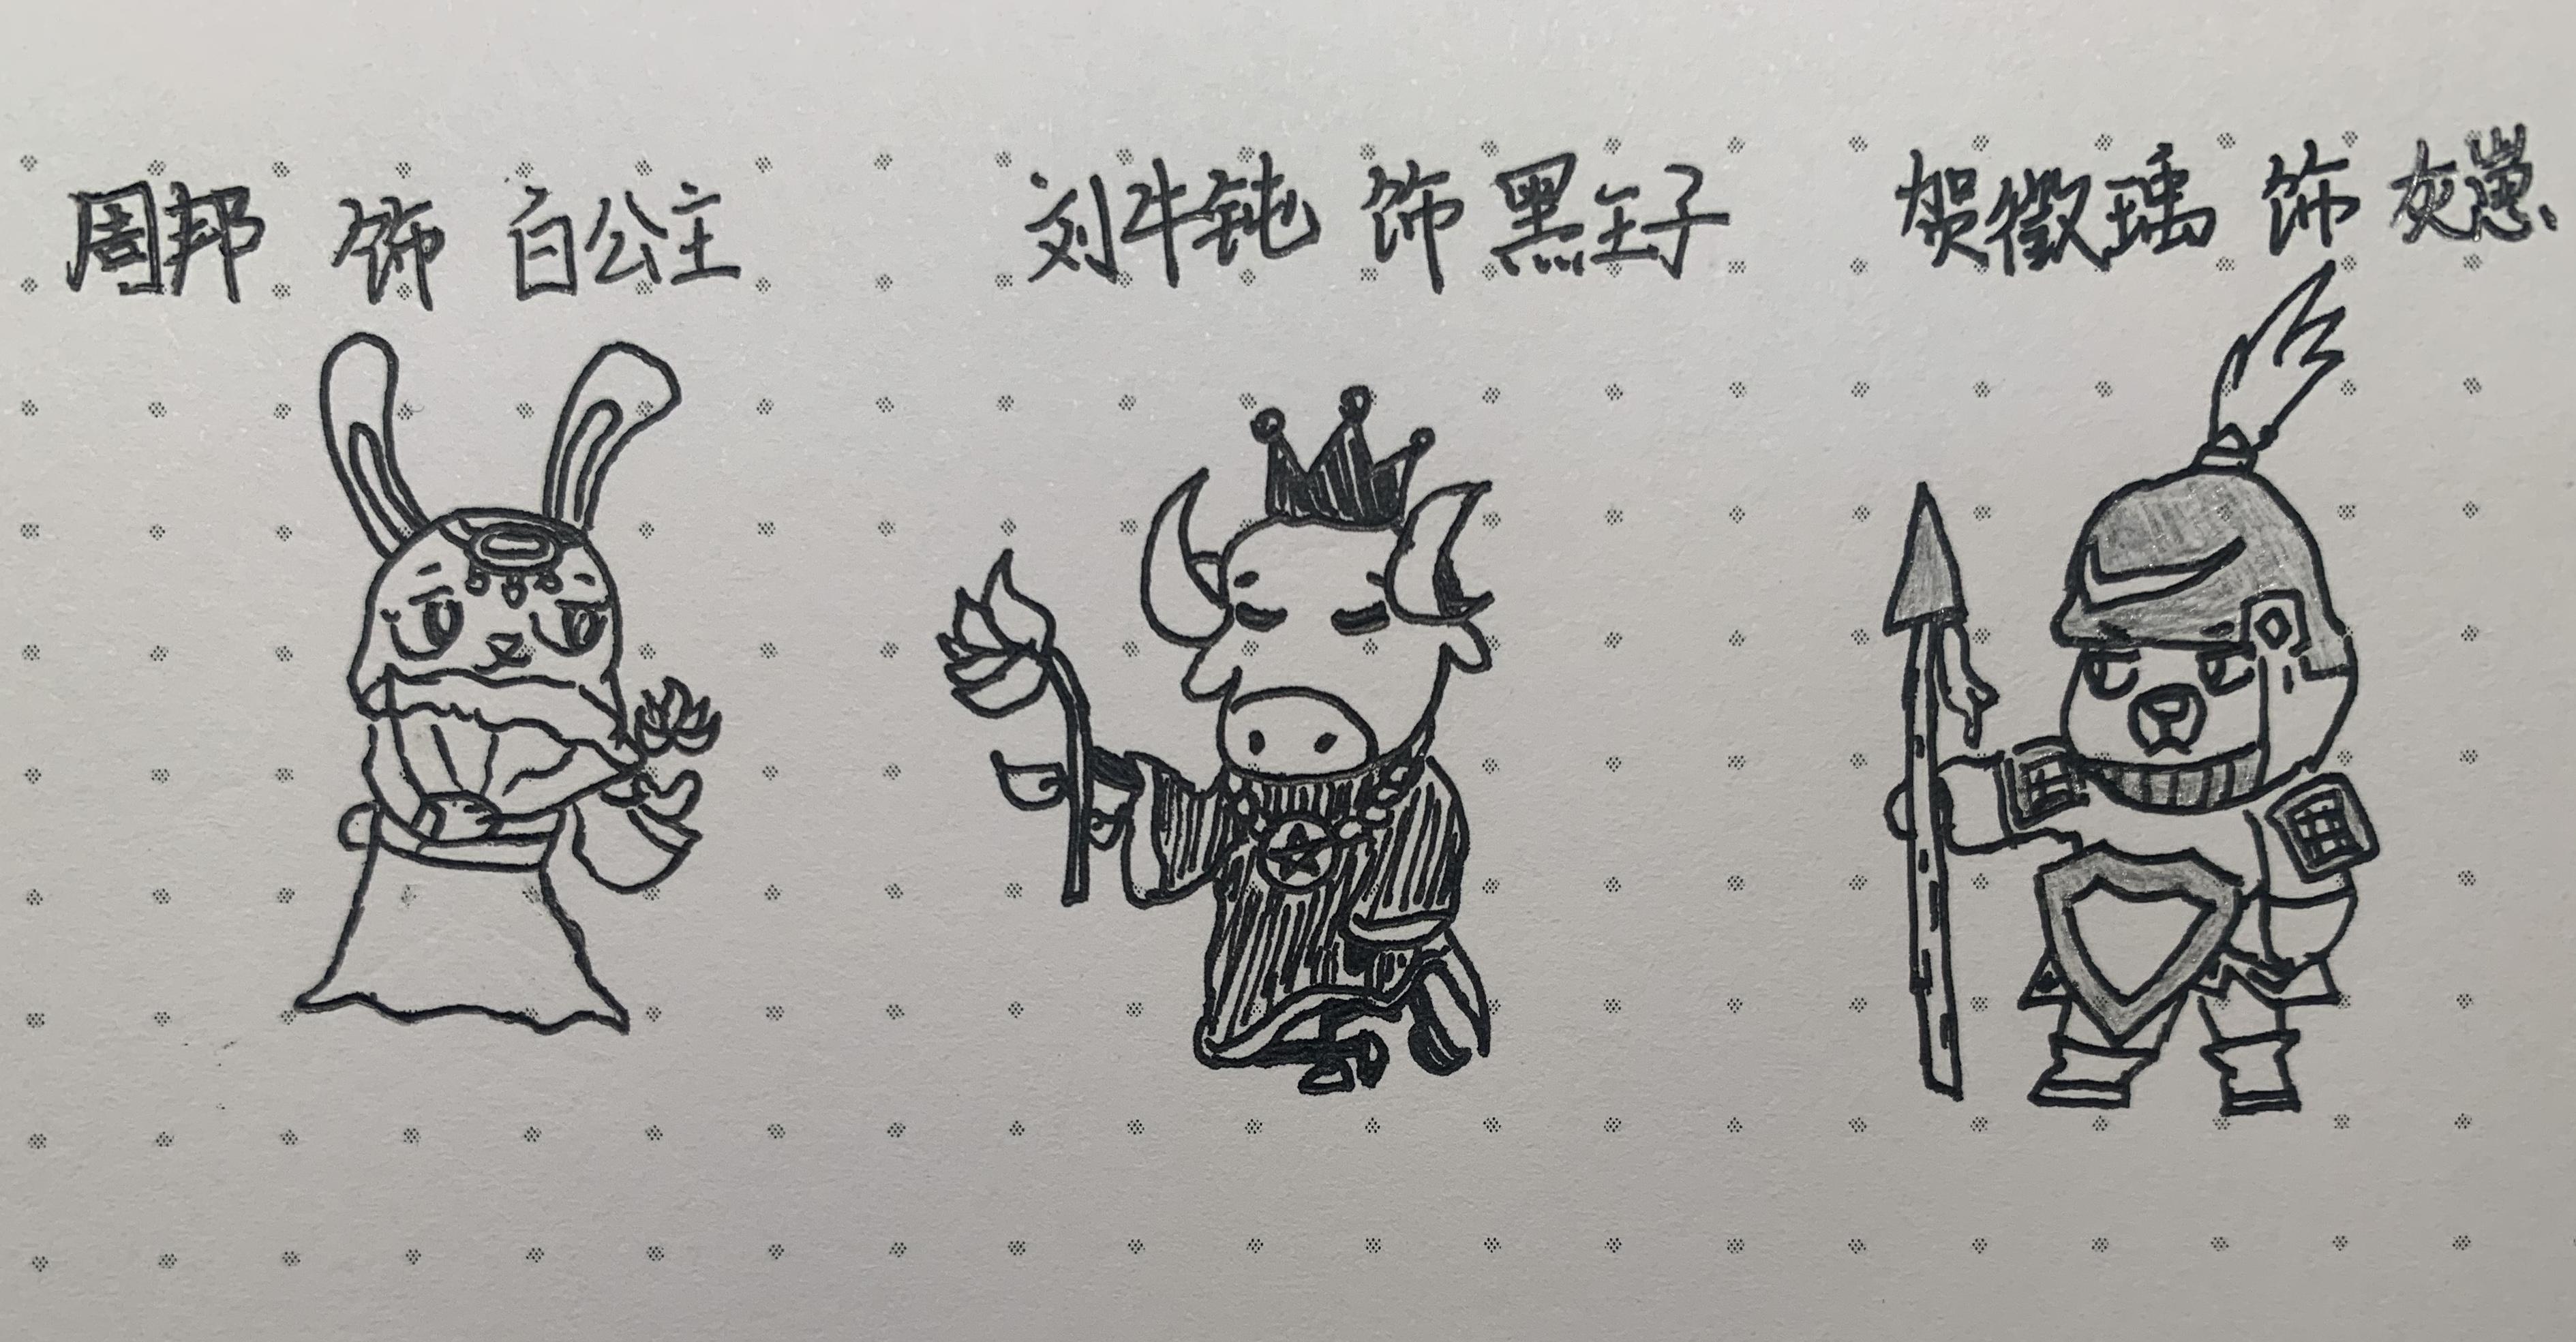 周邦 饰 白公主 刘牛钝 饰 黑王子 贺徵瑀 饰 灰崽